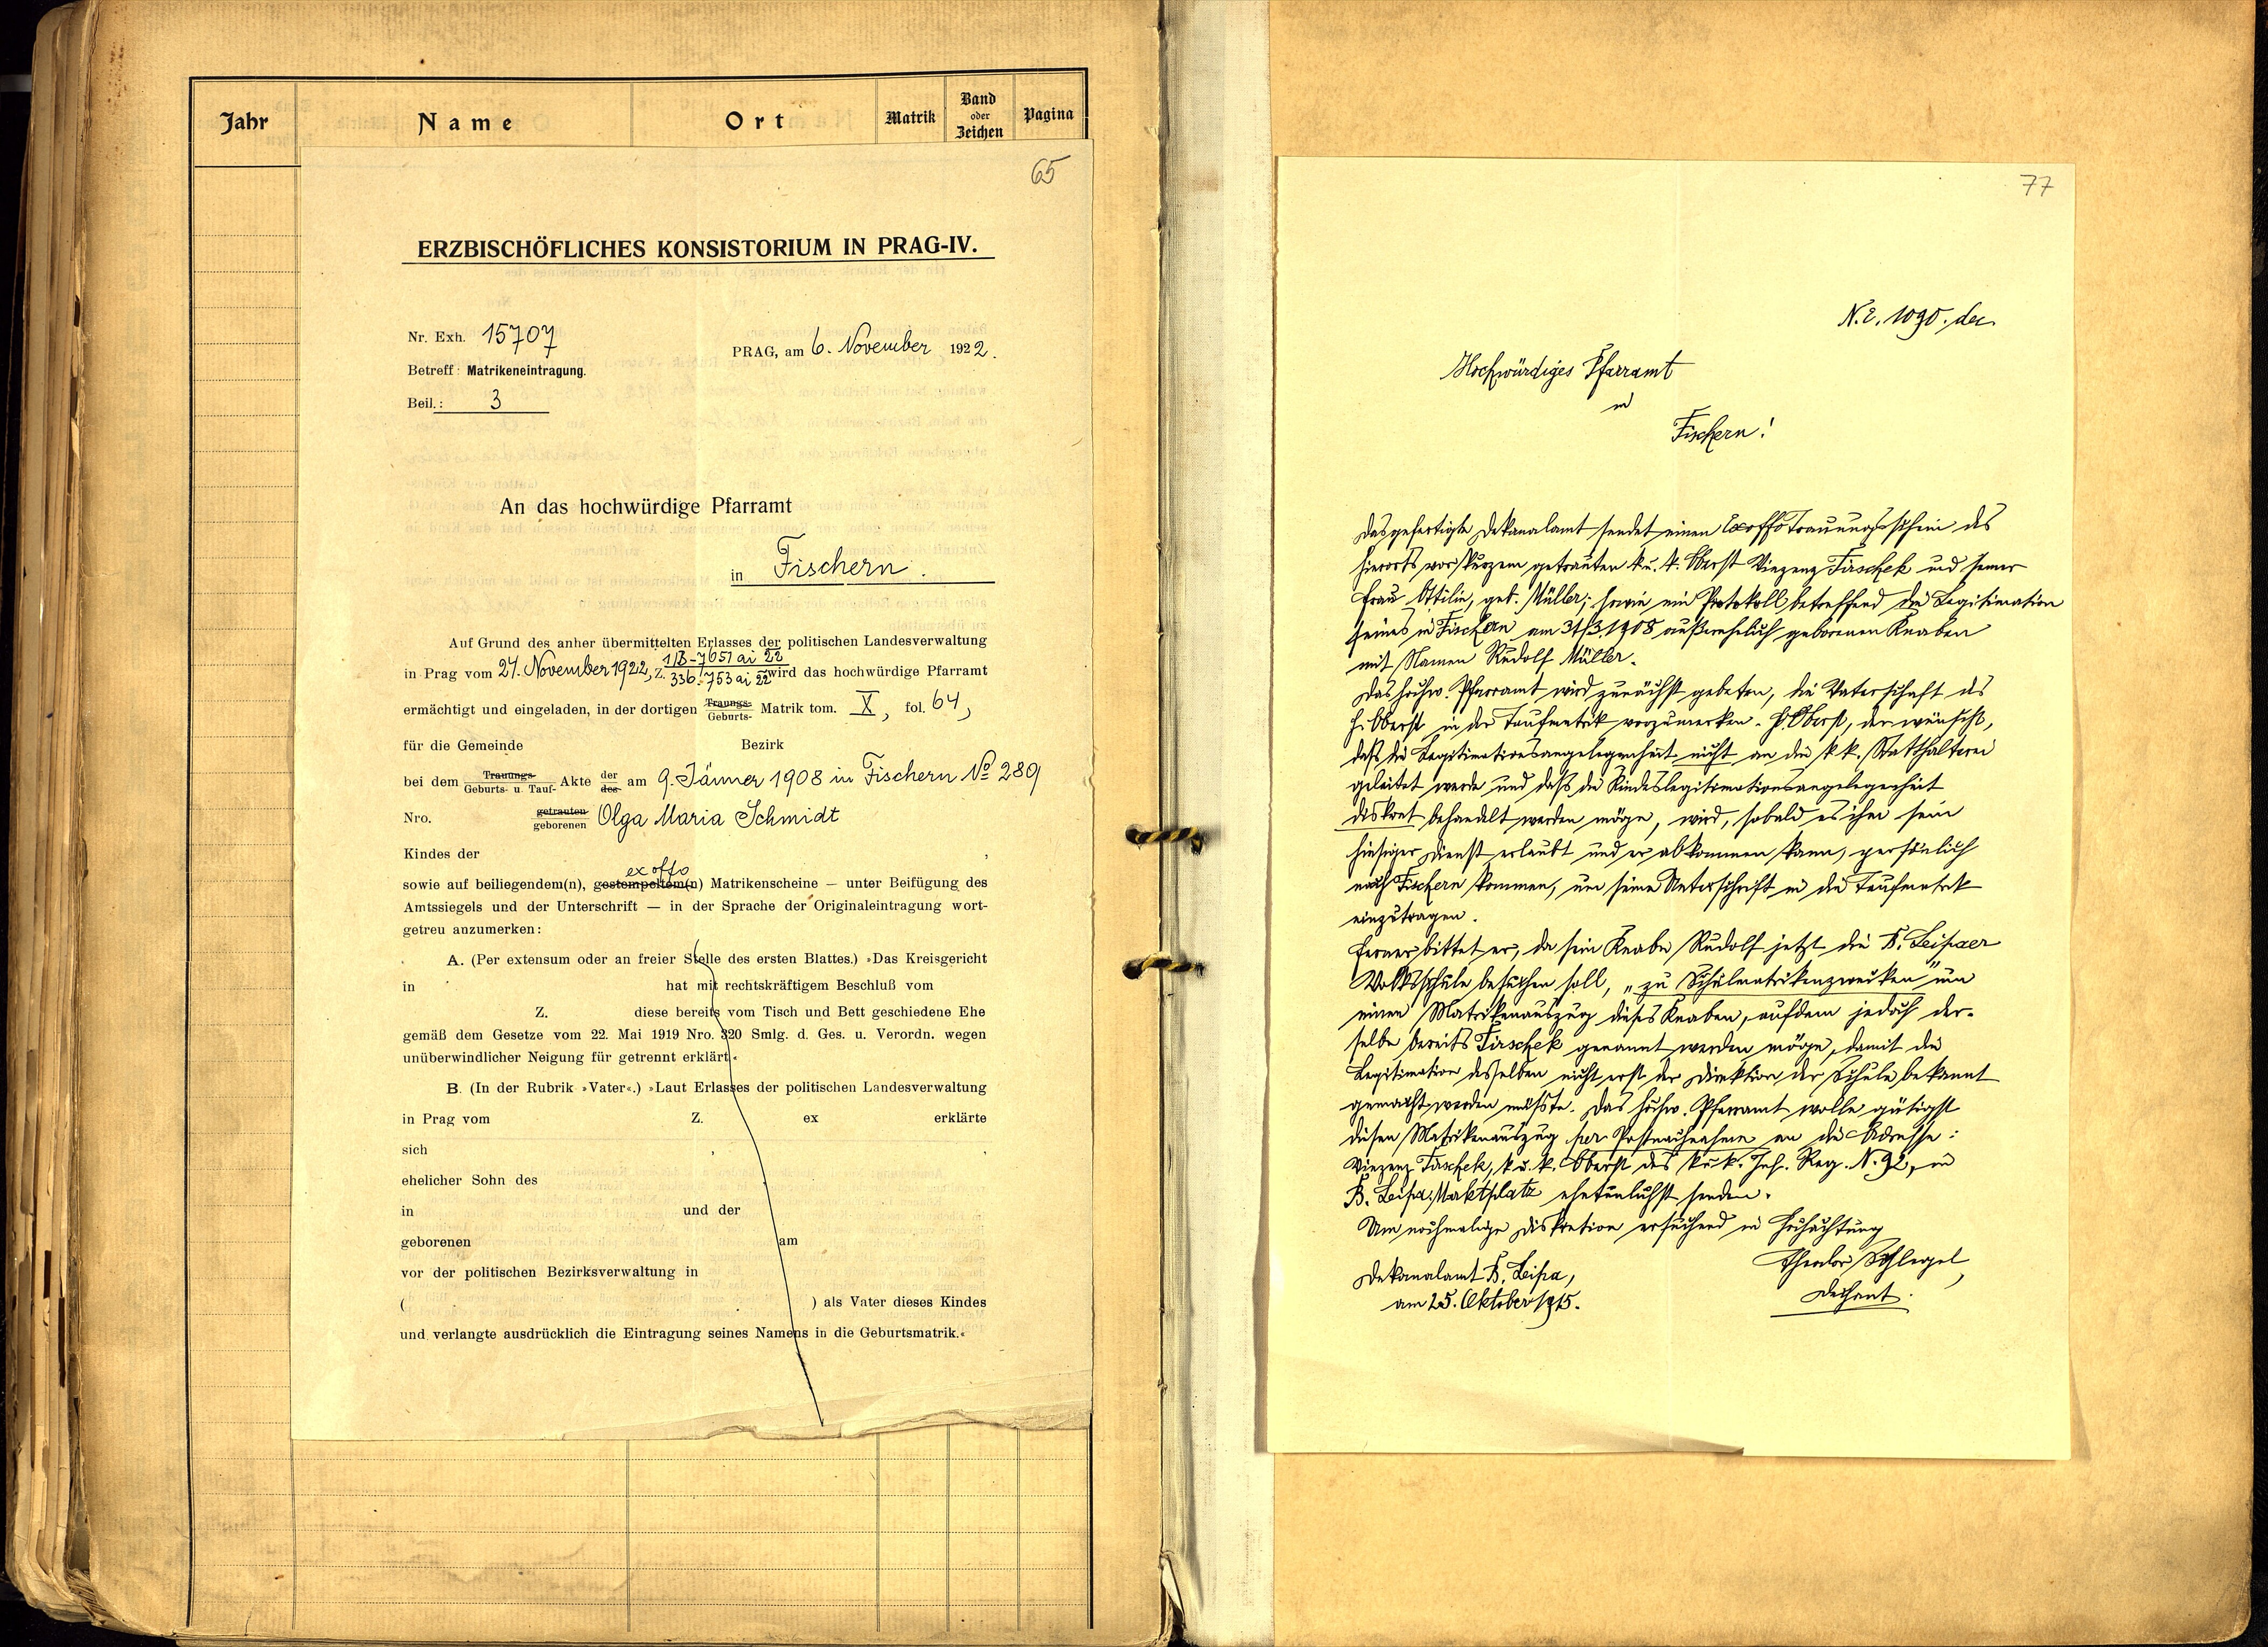 Jahr Name Ort Matrik Band oder Zeichen Pagina
65
ERZBISCHÖFLICHES KONSISTORIUM IN PRAG-IV.
Nr. Exh. 15707
PRAG, am 6. November 1922.
Betreff: Matrikeneintragung.
Beil.: 3
An das hochwürdige Pfarramt
in Fischern.
Auf Grund des anher übermittelten Erlasses der politischen Landesverwaltung
1/B-7651 ai 22
in Prag vom 27. November 1922, Z. 336.753 ai 22 wird das hochwürdige Pfarramt
ermächtigt und eingeladen, in der dortigen Trauungs- Geburts- Matrik tom. X, fol. 64,
für die Gemeinde Bezirk
bei dem Trauungs- Geburts- u. Tauf- Akte der des am 9. Jänner 1908 in Fischern No 289
Nro. getrauten geborenen Olga Maria Schmidt
Kindes der ,
ex offo
sowie auf beiliegendem(n), gestempeltem(n) Matrikenscheine — unter Beifügung des
Amtssiegels und der Unterschrift — in der Sprache der Originaleintragung wort-
getreu anzumerken:
A. (Per extensum oder an freier Stelle des ersten Blattes.) »Das Kreisgericht
in hat mit rechtskräftigem Beschluß vom
Z. diese bereits vom Tisch und Bett geschiedene Ehe
gemäß dem Gesetze vom 22. Mai 1919 Nro. 320 Smlg. d. Ges. u. Verordn. wegen
unüberwindlicher Neigung für getrennt erklärt.«
B. (In der Rubrik »Vater«.) »Laut Erlasses der politischen Landesverwaltung
in Prag vom Z. ex erklärte
sich , .
ehelicher Sohn des
in und der
geborenen am
vor der politischen Bezirksverwaltung in
( ) als Vater dieses Kindes
und verlangte ausdrücklich die Eintragung seines Namens in die Geburtsmatrik.«
77
N.E. 1090. dec.
Hochwürdiges Pfarramt
in
Fischern!
Das gefertigte Dekanalamt sendet einen Exoffo Trauungsschein des
hierorts vor kurzem getrauten k. u. k. Oberst Vinzenz Tirschek und seiner
Frau Ottilie, geb. Müller; sowie ein Protokoll betreffend die Legitimation
seines in Fischern am 31/3 1908 außerehelich geborenen Knaben
mit Namen Rudolf Müller.
Das hochw. Pfarramt wird zunächst gebeten, die Vaterschaft des
H. Oberst in der Taufmatrik vorzumerken. H. Oberst, der wünscht,
daß die Legitimationsangelegenheit nicht an die k.k. Statthalterei
geleitet werde und daß die Kindeslegitimationsangelegenheit
diskret behandelt werden möge, wird, sobald es ihm sein
hiesiger Dienst erlaubt und er abkommen kann, persönlich
nach Fischern kommen, um seine Unterschrift in die Taufmatrik
einzutragen.
Ferner bittet er, da sein Knabe Rudolf jetzt die B. Leipaer
Volksschule besuchen soll, „zu Schulmatrikenzwecken" um
einen Matrikenauszug dieses Knaben, auf dem jedoch der-
selbe bereits Tirschek genannt werden möge, damit die
Legitimation desselben nicht erst der Direktion der Schule bekannt
gemacht werden müsste. Das hochw. Pfarramt wolle gütigst
diesen Matrikenauszug per Postnachnahme an die Adresse:
Vinzenz Tirschek, k. u. k. Oberst des k. u. k. Inf. Reg. N. 92, in
B. Leipa, Marktplatz ehetunlichst senden.
Um nochmalige Diskretion ersuchend in Hochachtung
Theodor Schlegel
Dechant.
Dekanalamt B. Leipa,
am 25. Oktober 1915.